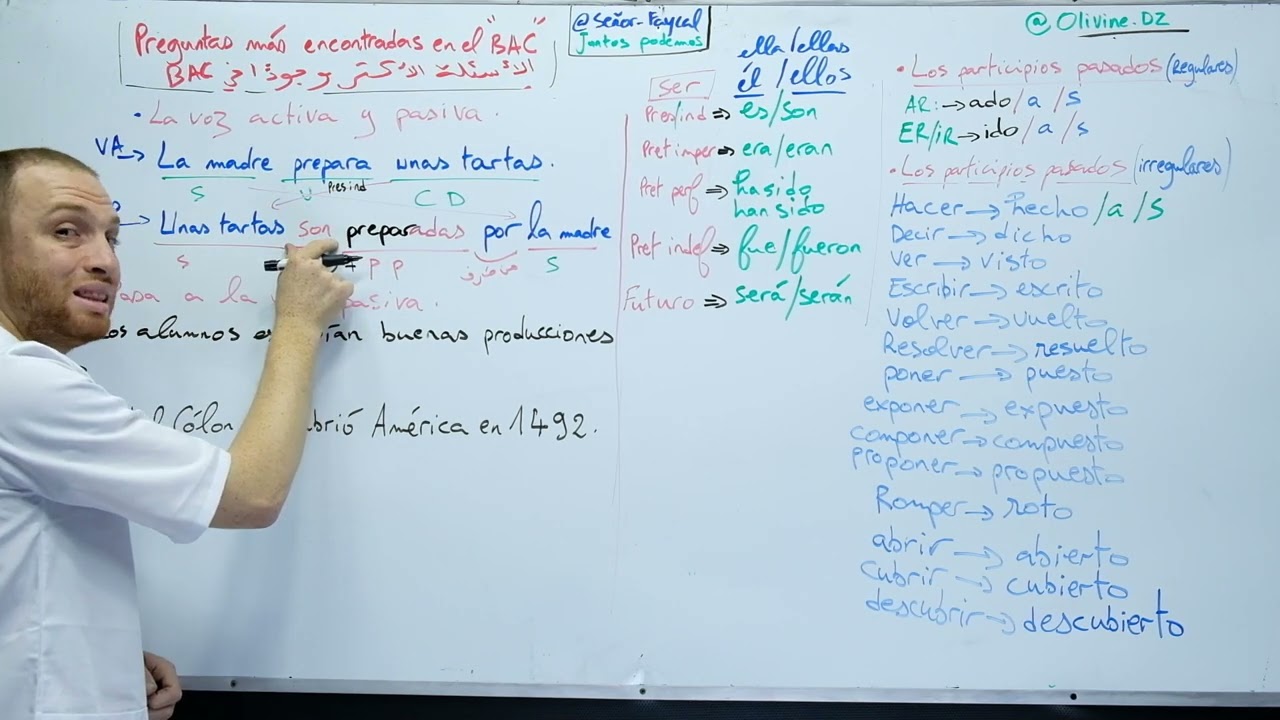 Preguntas más encontradas en el "BAC"
الأسئلة الأكثر وجودًا في BAC
@Señor-Fayçal
Juntos podemos
@Olivine.DZ
• La voz activa y pasiva.
VA → La madre prepara unas tartas.
S V Pres ind C D
→ Unas tartas son preparadas por la madre
S + P P S
a la pasiva.
alumnos buenas producciones
Cólon América en 1492.
ella/ellas
ser él/ellos
Pres/ind ⇒ es/son
Pret imper ⇒ era/eran
Pret perf ⇒ ha sido
han sido
Pret indef ⇒ fue/fueron
Futuro ⇒ será/serán
• Los participios pasados (Regulares)
AR: → ado/a/s
ER/iR → ido/a/s
• Los participios pasados (irregulares)
Hacer → hecho/a/s
Decir → dicho
Ver → visto
Escribir → escrito
Volver → vuelto
Resolver → resuelto
poner → puesto
exponer → expuesto
componer → compuesto
proponer → propuesto
Romper → roto
abrir → abierto
Cubrir → cubierto
descubrir → descubierto